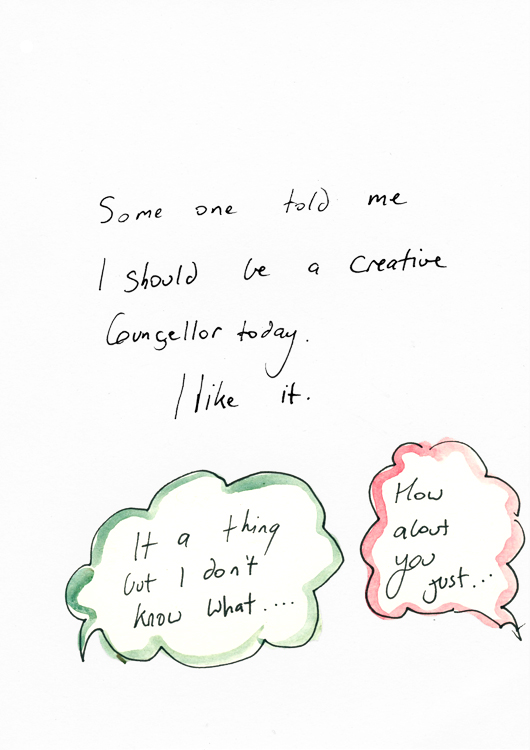 Some one told me
I should be a creative
Counsellor today.
I like it.
It a thing
but I don't
know what....
How
about
you
just...